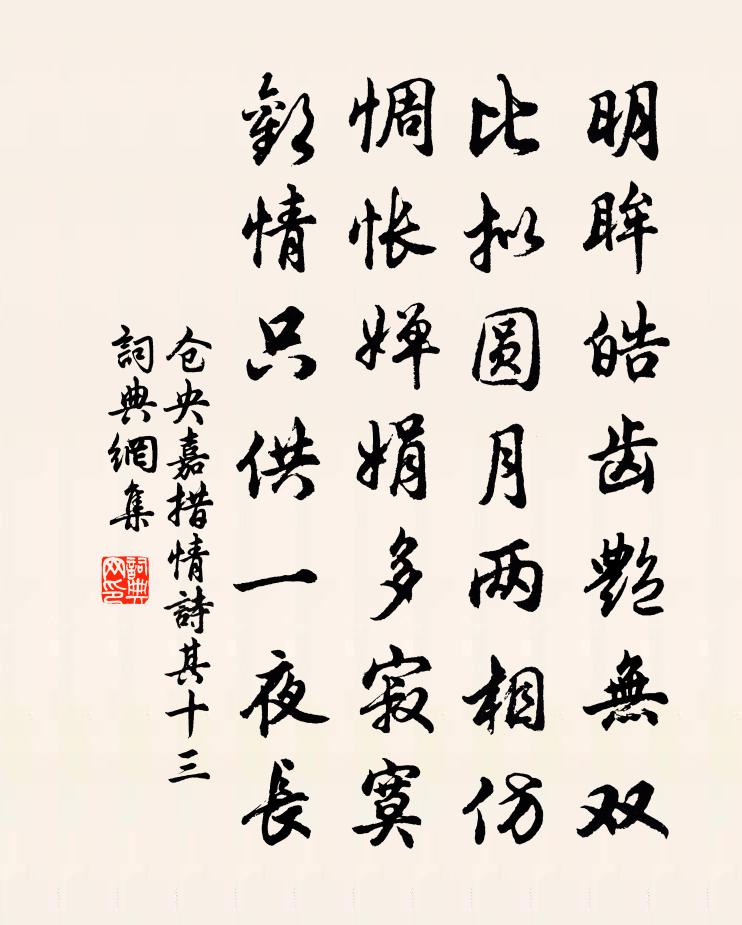 明眸皓齿艷無双
比拟圆月两相仿
惆怅婵娟多寂寞
歡情只供一夜長
仓央嘉措情詩其十三
詞典網集
詞典网印